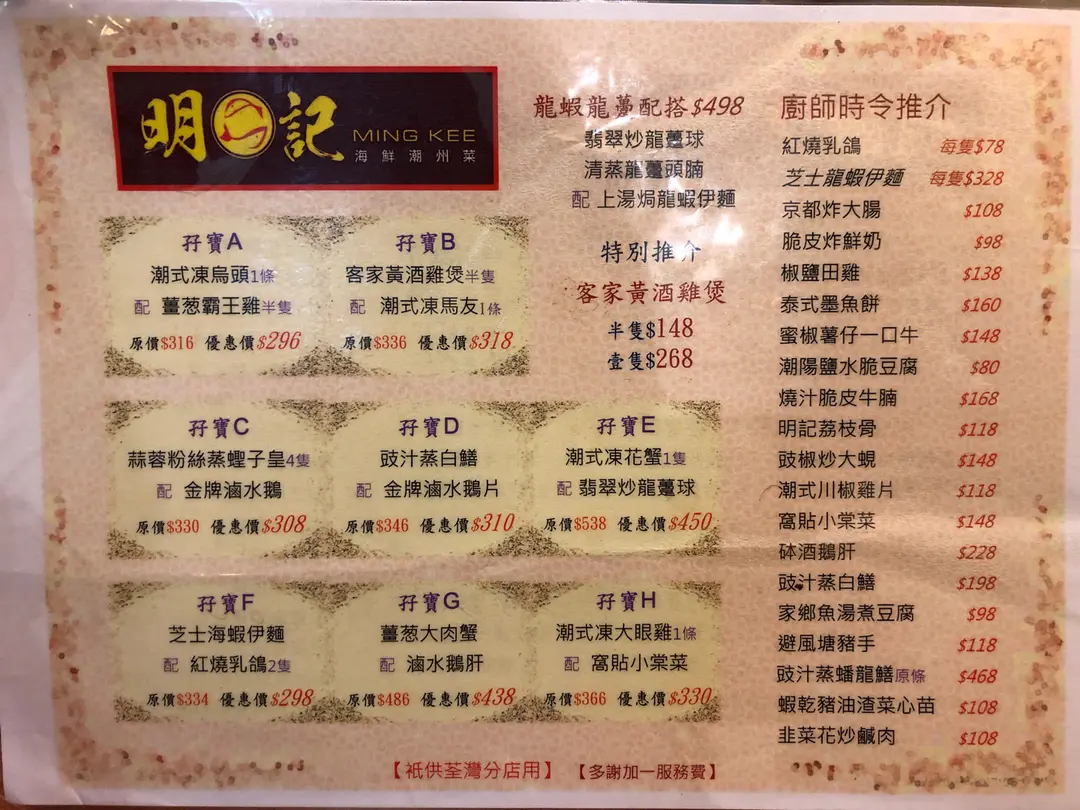 明記 MING KEE
海鮮潮州菜
龍蝦龍躉配搭$498
翡翠炒龍躉球
清蒸龍躉頭腩
配 上湯焗龍蝦伊麵
特別推介
客家黃酒雞煲
半隻$148
壹隻$268
孖寶A
潮式凍烏頭1條
配 薑葱霸王雞半隻
原價$316 優惠價$296
孖寶B
客家黃酒雞煲半隻
配 潮式凍馬友1條
原價$336 優惠價$318
孖寶C
蒜蓉粉絲蒸蟶子皇4隻
配 金牌滷水鵝
原價$330 優惠價$308
孖寶D
豉汁蒸白鱔
配 金牌滷水鵝片
原價$346 優惠價$310
孖寶E
潮式凍花蟹1隻
配 翡翠炒龍躉球
原價$538 優惠價$450
孖寶F
芝士海蝦伊麵
配 紅燒乳鴿2隻
原價$334 優惠價$298
孖寶G
薑葱大肉蟹
配 滷水鵝肝
原價$486 優惠價$438
孖寶H
潮式凍大眼雞1條
配 窩貼小棠菜
原價$366 優惠價$330
廚師時令推介
紅燒乳鴿 每隻$78
芝士龍蝦伊麵 每隻$328
京都炸大腸 $108
脆皮炸鮮奶 $98
椒鹽田雞 $138
泰式墨魚餅 $160
蜜椒薯仔一口牛 $148
潮陽鹽水脆豆腐 $80
燒汁脆皮牛腩 $168
明記荔枝骨 $118
豉椒炒大蜆 $148
潮式川椒雞片 $118
窩貼小棠菜 $148
砵酒鵝肝 $228
豉汁蒸白鱔 $198
家鄉魚湯煮豆腐 $98
避風塘豬手 $118
豉汁蒸蟠龍鱔原條 $468
蝦乾豬油渣菜心苗 $108
韭菜花炒鹹肉 $108
【祇供荃灣分店用】 【多謝加一服務費】